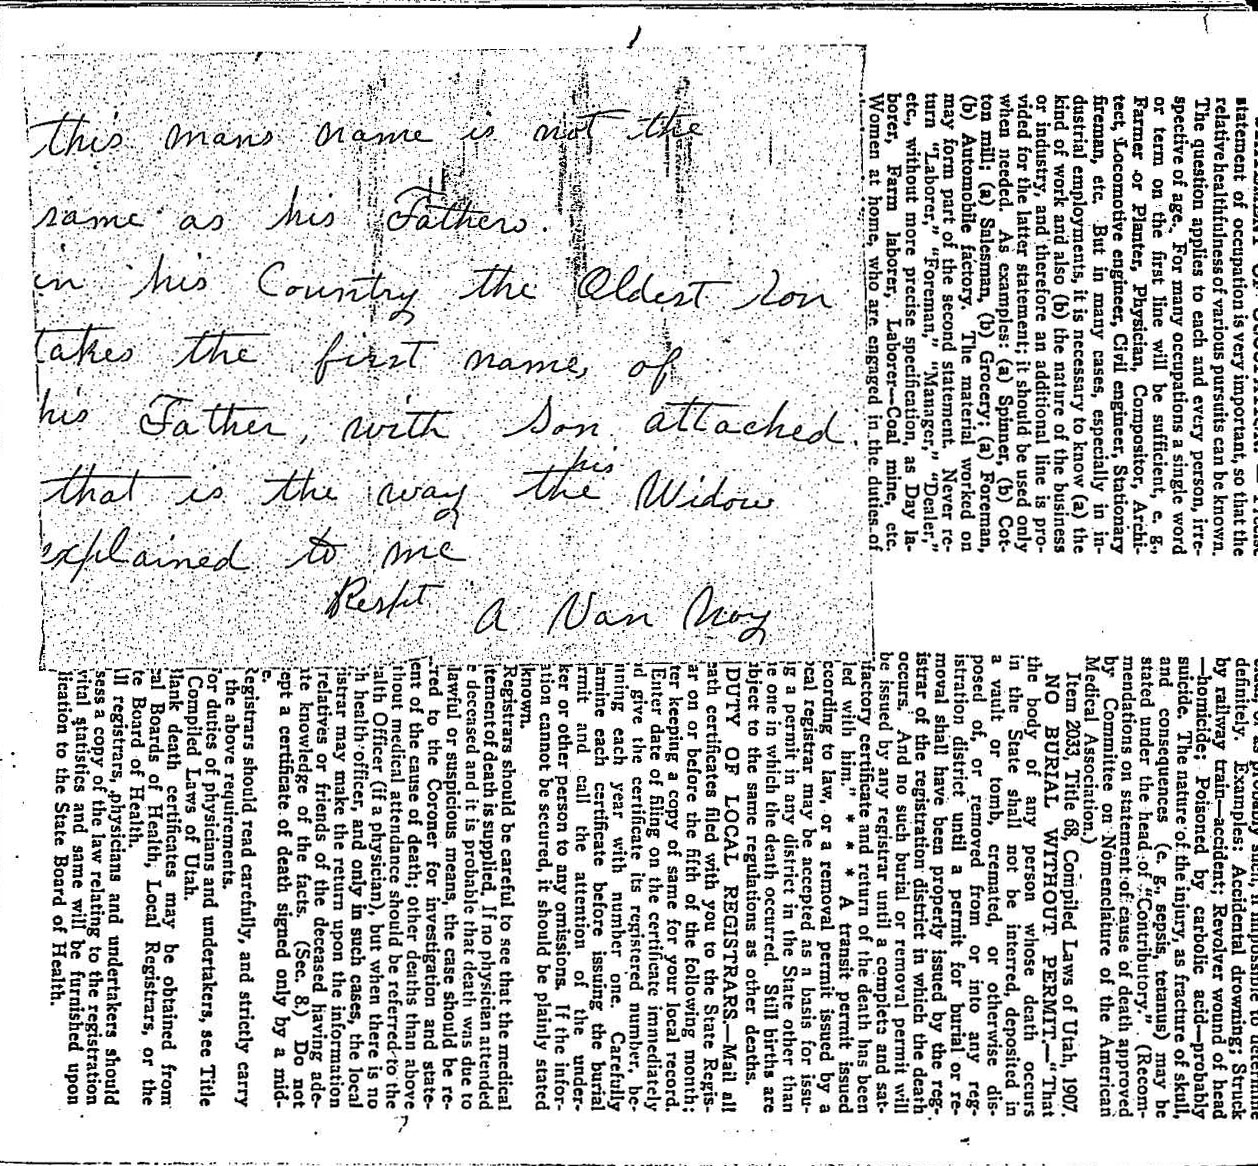 this mans name is not the
same as his Fathers.
in his Country the Oldest Son
takes the first name of
his Father, with Son attached.
that is the way the his Widow
explained to me
Respt A Van Noy
statement of occupation is very important, so that the
relative healthfulness of various pursuits can be known.
The question applies to each and every person, irre-
spective of age. For many occupations a single word
or term on the first line will be sufficient, e. g.,
Farmer or Planter, Physician, Compositor, Archi-
tect, Locomotive engineer, Civil engineer, Stationary
fireman, etc. But in many cases, especially in in-
dustrial employments, it is necessary to know (a) the
kind of work and also (b) the nature of the business
or industry, and therefore an additional line is pro-
vided for the latter statement; it should be used only
when needed. As examples: (a) Spinner, (b) Cot-
ton mill; (a) Salesman, (b) Grocery; (a) Foreman,
(b) Automobile factory. The material worked on
may form part of the second statement. Never re-
turn "Laborer," "Foreman," "Manager," "Dealer,"
etc., without more precise specification, as Day la-
borer, Farm laborer, Laborer—Coal mine, etc.
Women at home, who are engaged in the duties of
definitely. Examples: Accidental drowning; Struck
by railway train—accident; Revolver wound of head
—homicide; Poisoned by carbolic acid—probably
suicide. The nature of the injury, as fracture of skull,
and consequences (e. g., sepsis, tetanus) may be
stated under the head of "Contributory." (Recom-
mendations on statement of cause of death approved
by Committee on Nomenclature of the American
Medical Association.)
Item 2033, Title 68, Compiled Laws of Utah, 1907.
NO BURIAL WITHOUT PERMIT.—"That
the body of any person whose death occurs
in the State shall not be interred, deposited in
a vault or tomb, cremated, or otherwise dis-
posed of, or removed from or into any reg-
istration district until a permit for burial or re-
moval shall have been properly issued by the reg-
istrar of the registration district in which the death
occurs. And no such burial or removal permit will
be issued by any registrar until a complete and sat-
isfactory certificate and return of the death has been
led with him." * * * A transit permit issued
ccording to law, or a removal permit issued by a
cal registrar may be accepted as a basis for issu-
g a permit in any district in the State other than
e one in which the death occurred. Still births are
bject to the same regulations as other deaths.
DUTY OF LOCAL REGISTRARS.—Mail all
eath certificates filed with you to the State Regis-
ar on or before the fifth of the following month;
ter keeping a copy of same for your local record.
Enter date of filing on the certificate immediately
d give the certificate its registered number, be-
nning each year with number one. Carefully
amine each certificate before issuing the burial
rmit and call the attention of the under-
ker or other person to any omissions. If the infor-
ation cannot be secured, it should be plainly stated
known.
Registrars should be careful to see that the medical
tement of death is supplied. If no physician attended
e deceased and it is probable that death was due to
lawful or suspicious means, the case should be re-
rred to the Coroner for investigation and state-
ent of the cause of death; other deaths than above
thout medical attendance should be referred to the
alth Officer (if a physician), but when there is no
h health officer, and only in such cases, the local
istrar may make the return upon the information
relatives or friends of the deceased having ade-
te knowledge of the facts. (Sec. 8.) Do not
ept a certificate of death signed only by a mid-
e.
Registrars should read carefully, and strictly carry
the above requirements.
or duties of physicians and undertakers, see Title
Compiled Laws of Utah.
lank death certificates may be obtained from
al Boards of Health, Local Registrars, or the
te Board of Health.
ll registrars, physicians and undertakers should
sess a copy of the law relating to the registration
vital statistics and same will be furnished upon
lication to the State Board of Health.